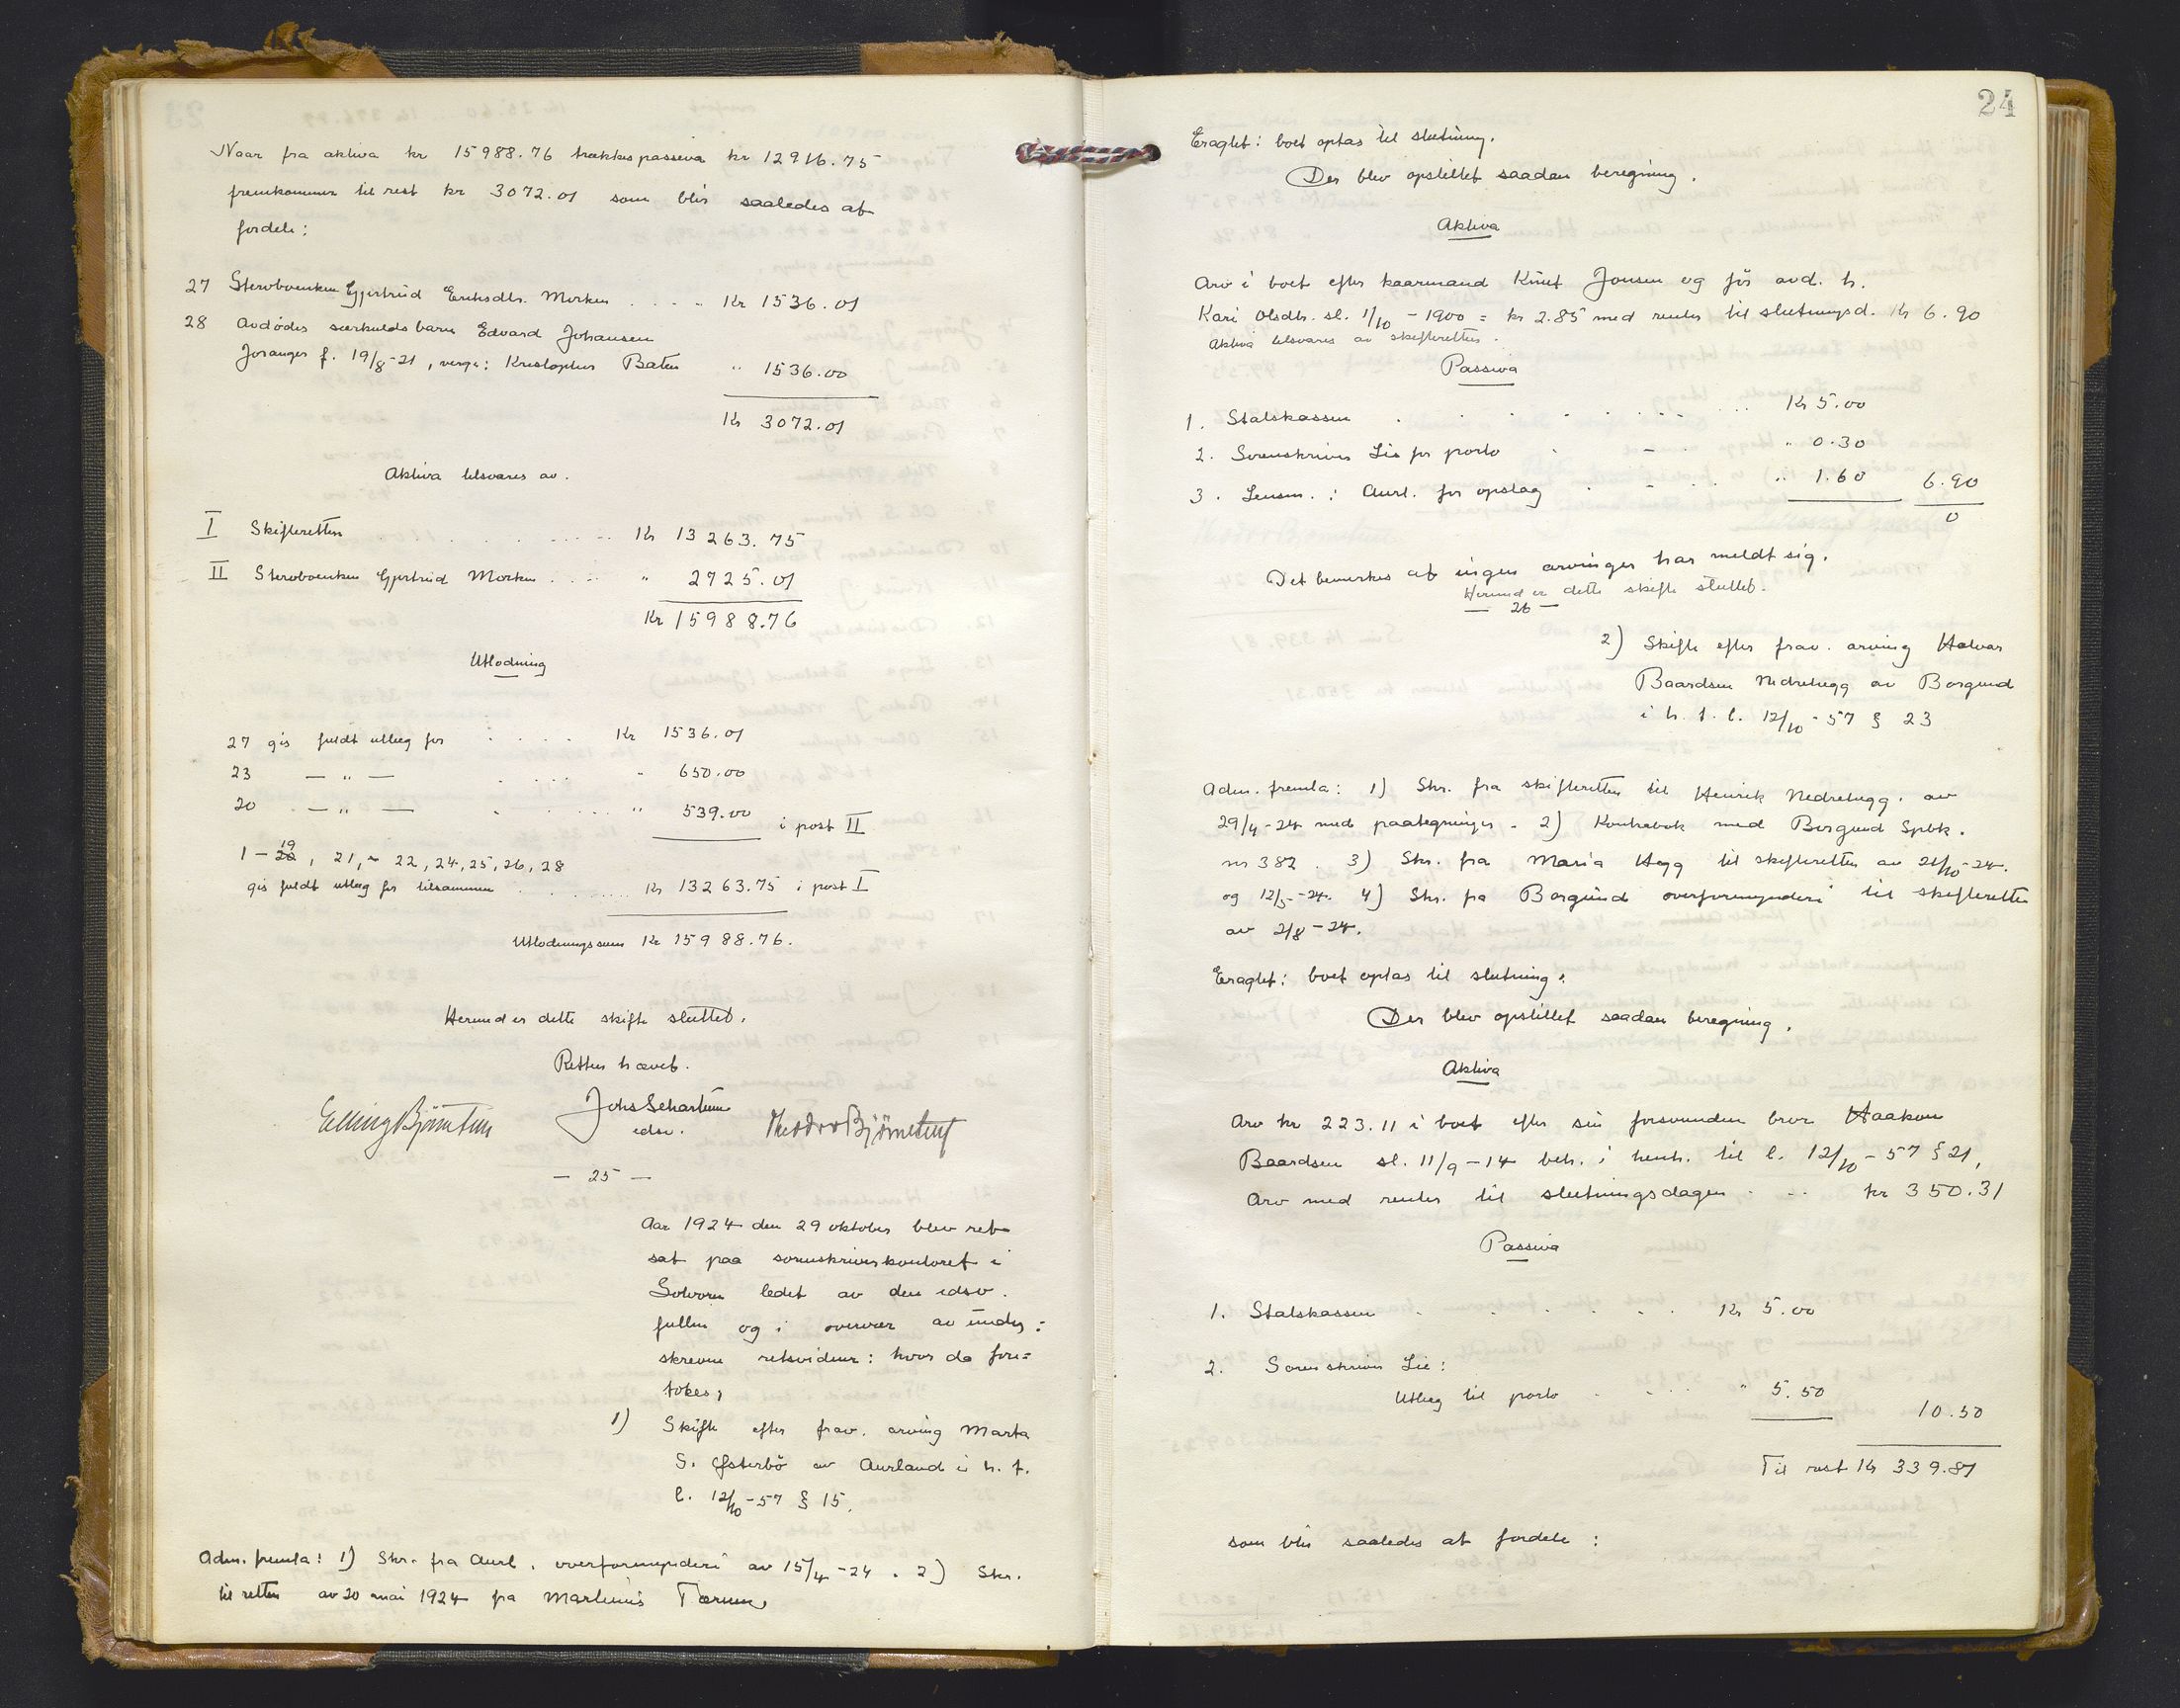 Naar fra aktiva kr 15988.76 trækkes passiva kr 12916.75
fremkommer til rest kr 3072.01 som blir saaledes at
fordele:
27 Sterboenken Gjertrud Eriksdtr. Morken . . . . Kr 1536.01
28 Avdødes særkuldsbarn Edvard Johansen
Joranger f. 19/8-21, verge: Kristopher Baten " 1536.00
Kr 3072.01
Aktiva tilsvares av.
I Skifteretten . . . . . . . Kr 13263.75
II Sterboenken Gjertrud Morken . . . . " 2725.01
Kr 15988.76
Utlodning
27 gis fuldt utlæg for . . . . Kr 1536.01
23 — " — . . . . - 650.00
20 — " — . . . . " 539.00 i post II
1 - 19, 21, 22, 24, 25, 26, 28
gis fuldt utlæg for tilsammen . . . . . . Kr 13263.75 i post I
Utlodningssum Kr 15988.76.
Hermed er dette skifte sluttet.
Retten hævet.
Elling Bjørnetun Johs Schartum Theodor Bjørnetun
edsv.
— 25 —
Aar 1924 den 29 oktober blev ret
sat paa sorenskriverkontoret i
Solvorn ledet av den edsv.
fullm og i overvær av under=
skrevne retsvidner: hvor da fore=
tokes,
1) Skifte efter frav. arving Marta
S. Østerbö av Aurland i h. t.
l. 12/10-57 § 15.
Adm. fremla: 1) Skr. fra Aurl. overformynderi av 15/4-24. 2) Skr.
til retten av 20 mai 1924 fra Martinus Tærum
24
Eragtet: boet optas til slutning.
Der blev opstillet saadan beregning.
Aktiva
Arv i boet efter kaarmand Knut Jonsen og før avd. h.
Kari Olsdtr. sl. 1/10 - 1900 = kr 2.85 med renter til slutningsd. Kr 6.90
Aktiva tilsvares av skifteretten.
Passiva
1. Statskassen . . . . . . . Kr 5.00
2. Sorenskriver Lie for porto . - . " 0.30
3. Lensm. i Aurl. for opslag . - . . " 1.60 6.90
0
Det bemerkes at ingen arvinger har meldt sig.
Hermed er dette skifte sluttet.
— 26 —
2) Skifte efter frav. arving Halvar
Baardsen Nedrehegg av Borgund
i h. t. l. 12/10 - 57 § 23
Adm. fremla: 1) Skr. fra skifteretten til Henrik Nedrehegg. av
29/4-24 med paategninger. 2) Kontrabok med Borgund Spbk.
nr 382. 3) Skr. fra Maria Hegg til skifteretten av 21/10-24.
og 12/5-24. 4) Skr. fra Borgund overformynderi til skifteretten
av 2/8-24.
Eragtet: boet optas til slutning.
Der blev opstillet saadan beregning.
Aktiva
Arv kr 223.11 i boet efter sin forsvunden bror Haakon
Baardsen sl. 11/9-14 beh. i henh. til l. 12/10-57 § 21,
Arv med renter til slutningsdagen . . . kr 350.31
Passiva
1. Statskassen . . . . . . Kr 5.00
2. Sorenskriver Lie:
Utlæg til porto . . . . " 5.50 10.50
Til rest Kr 339.81
som blir saaledes at fordele: